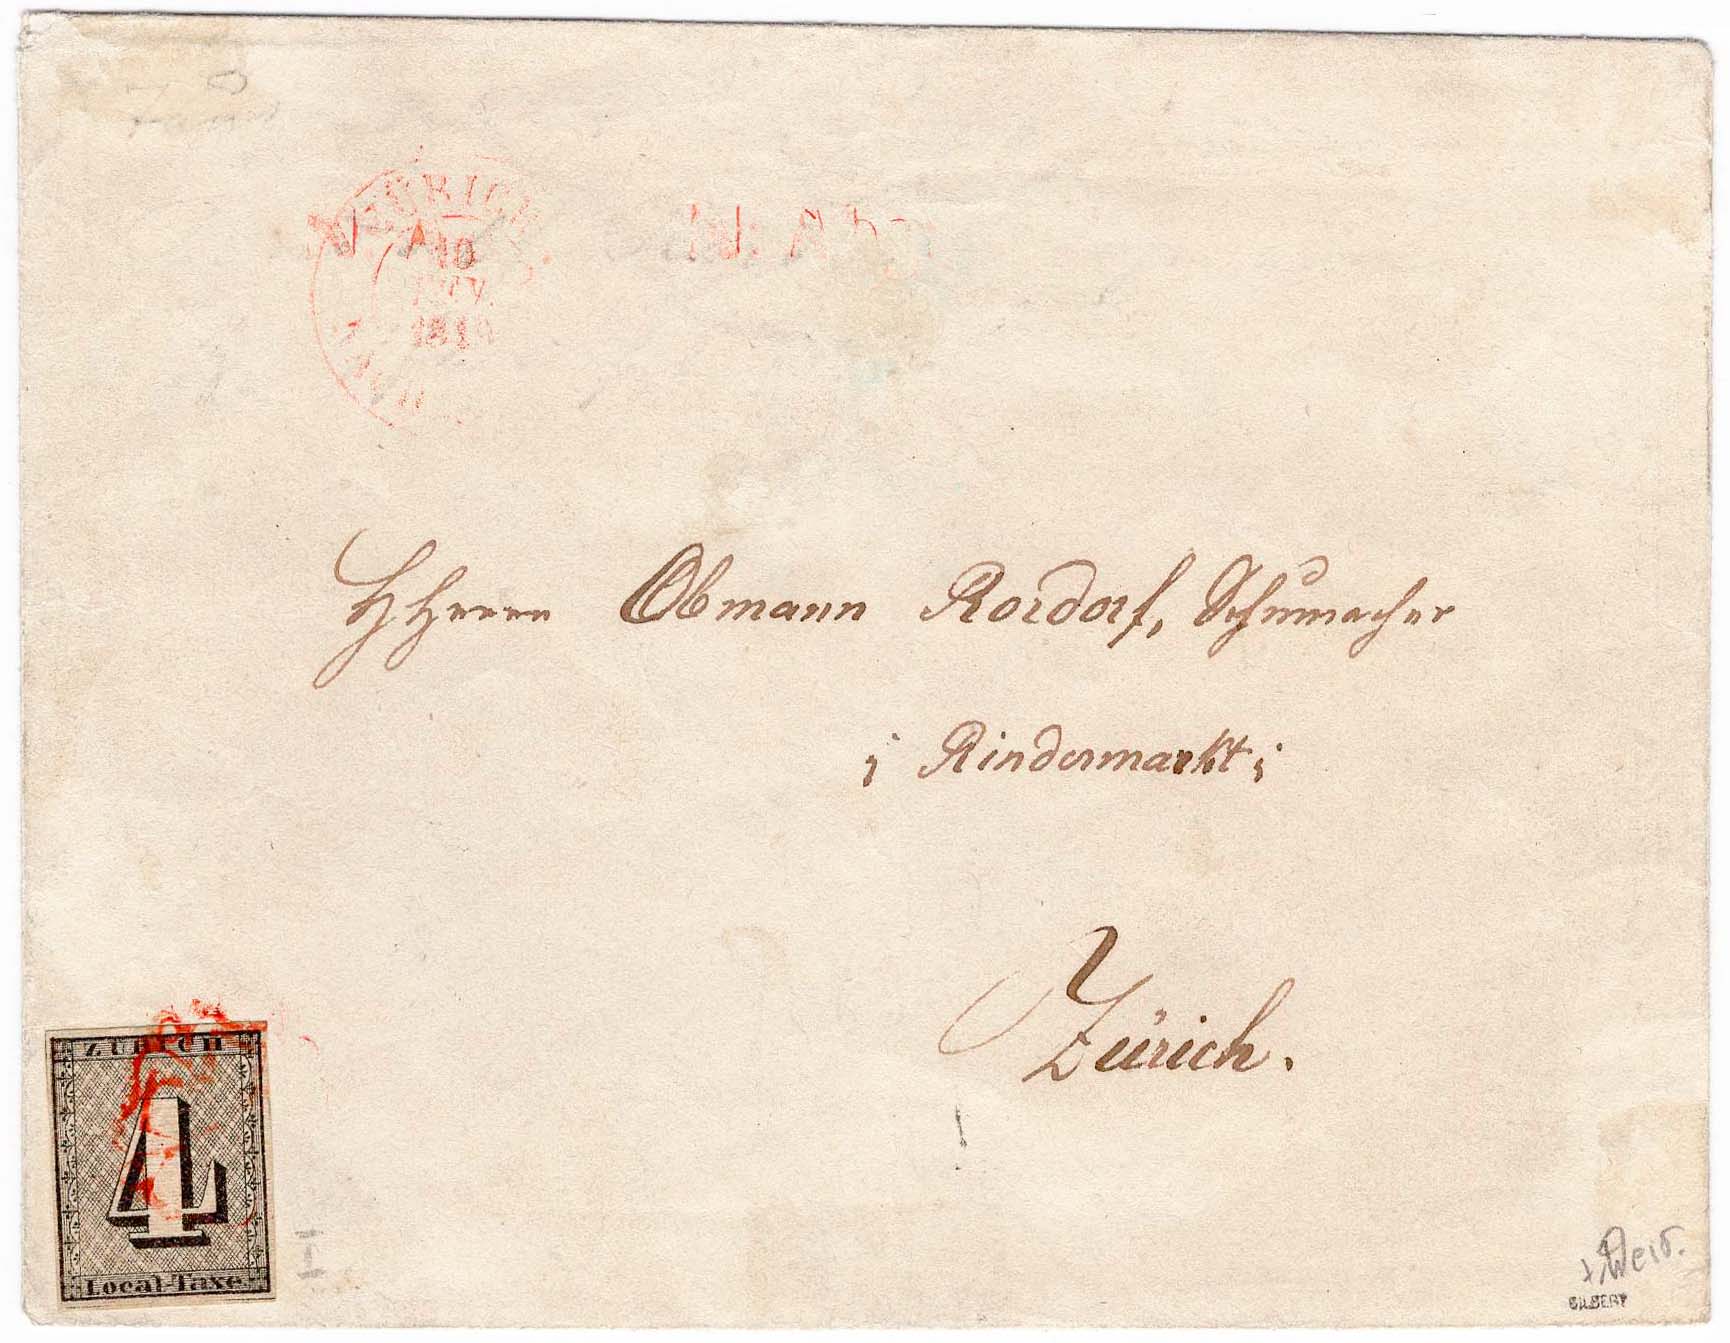 ZÜRICH
10
1849
N. Abg
HHerrn Obmann Rordorf, Schumacher
¡ Rindermarkt ;
Zürich.
ZÜRICH
4
Local-Taxe
I
GILBERT